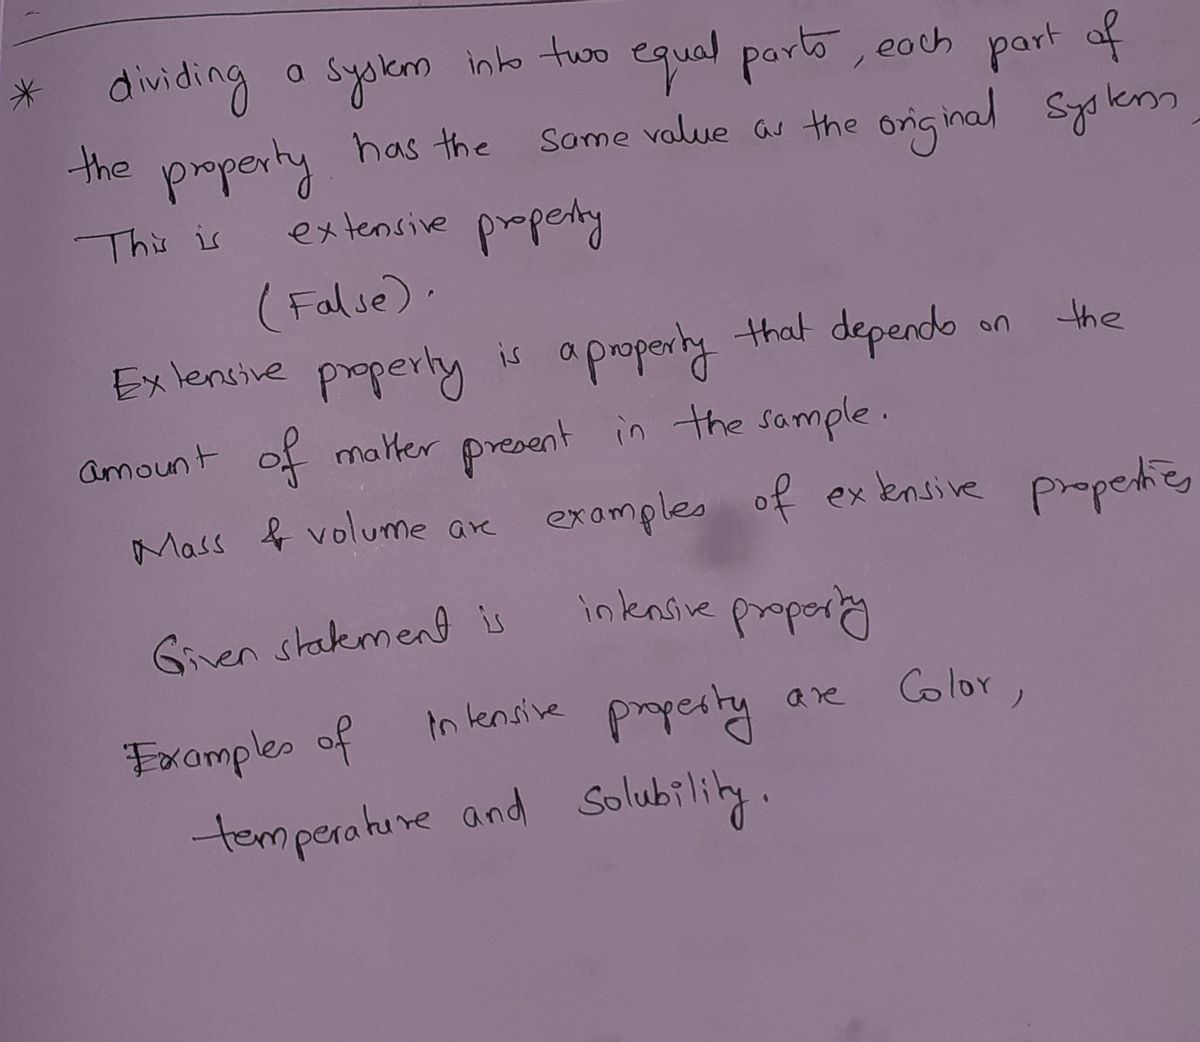 * dividing a system into two equal parts, each part of
the property has the same value as the original system,
This is extensive property
(False).
Extensive property is a property that depends on the
amount of matter present in the sample.
Mass & volume are examples of extensive properties
Given statement is intensive property
Examples of Intensive property are Color,
temperature and solubility.